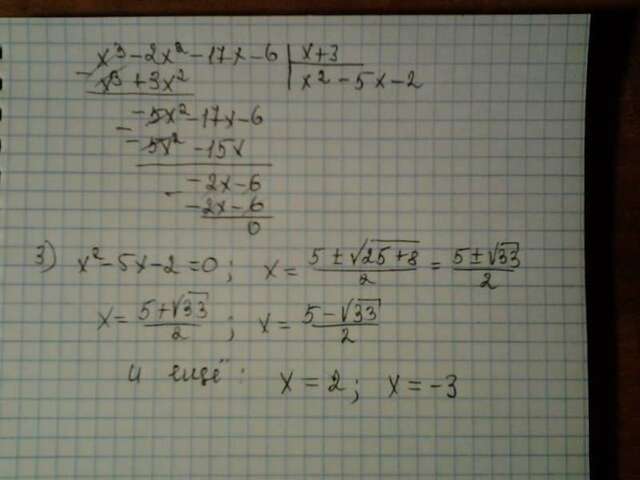 x³ - 2x² - 17x - 6 | x + 3
- x³ + 3x² | x² - 5x - 2
- 5x² - 17x - 6
- - 5x² - 15x
- 2x - 6
- - 2x - 6
0
3) x² - 5x - 2 = 0 ; x = (5 ± √25 + 8)/2 = (5 ± √33)/2
x = (5 + √33)/2 ; x = (5 - √33)/2
и ещё : x = 2 ; x = -3